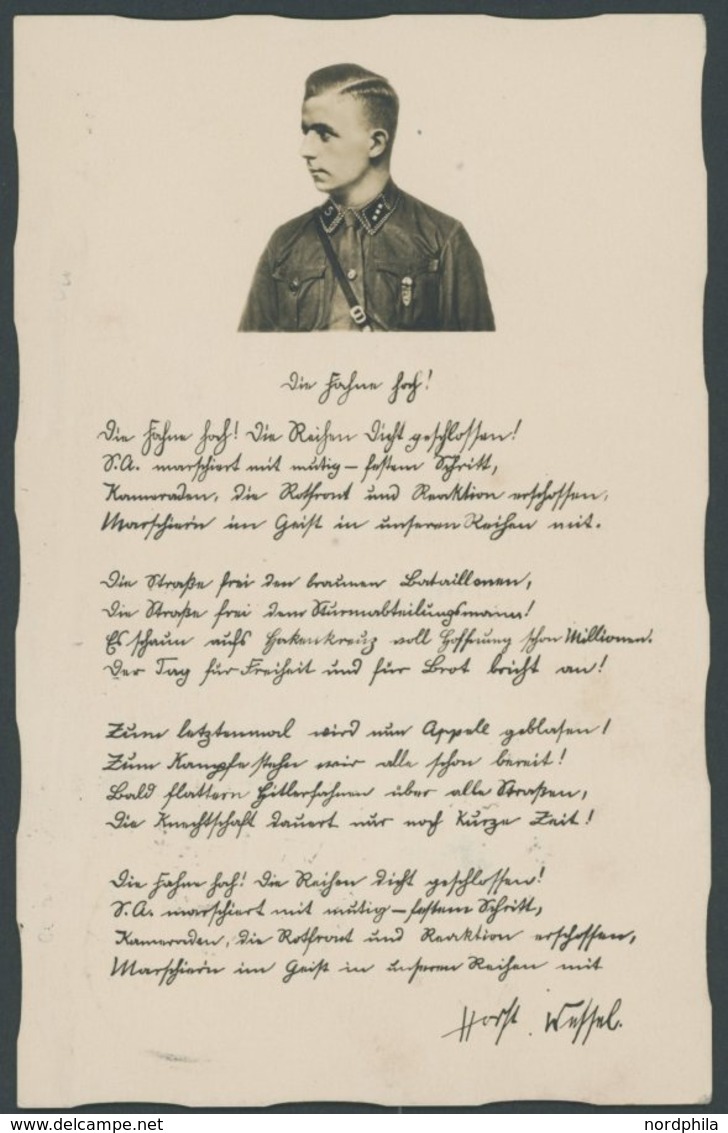 Die Fahne hoch!
Die Fahne hoch! Die Reihen dicht geschlossen!
S.A. marschiert mit mutig-festem Schritt,
Kameraden, die Rotfront und Reaktion erschossen,
Marschiern im Geist in unseren Reihen mit.
Die Straße frei den braunen Bataillonen,
Die Straße frei dem Sturmabteilungsmann!
Es schaun aufs Hakenkreuz voll Hoffnung schon Millionen.
Der Tag für Freiheit und für Brot bricht an!
Zum letztenmal wird nun Appell geblasen!
Zum Kampfe stehn wir alle schon bereit!
Bald flattern Hitlerfahnen über alle Straßen,
Die Knechtschaft dauert nur noch kurze Zeit!
Die Fahne hoch! Die Reihen dicht geschlossen!
S.A. marschiert mit mutig-festem Schritt,
Kameraden, die Rotfront und Reaktion erschossen,
Marschiern im Geist in unseren Reihen mit
Horst Wessel.
nordphila